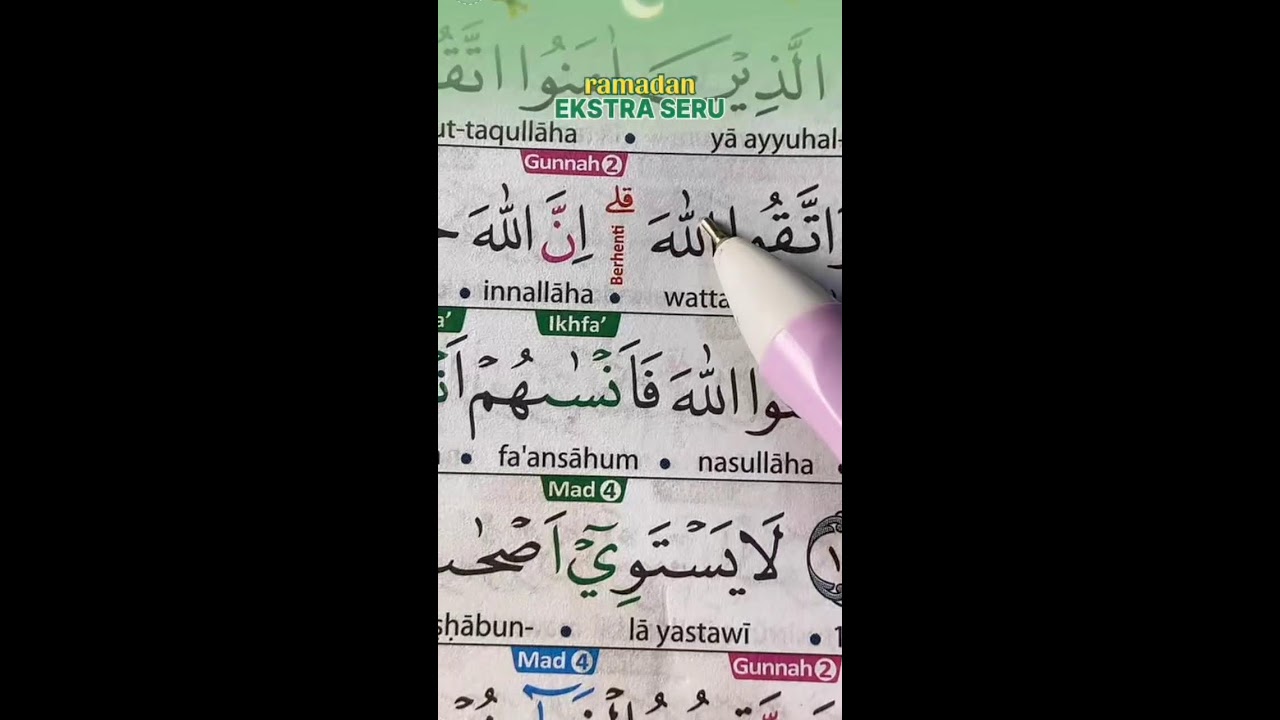 ramadan
EKSTRA SERU
الَّذِيْنَ اٰمَنُوا اتَّقُ
ut-taqullāha • yā ayyuhal-
Gunnah 2
وَاتَّقُوا اللّٰهَ ۗ اِنَّ اللّٰهَ
قلے
Berhenti
• innallāha • watta
Ikhfa’
اللّٰهَ فَاَنْسٰىهُمْ
• fa'ansāhum • nasullāha
Mad 4
لَا يَسْتَوِيْٓ اَصْحٰ
sḥābun- • lā yastawī •
Mad 4 Gunnah 2